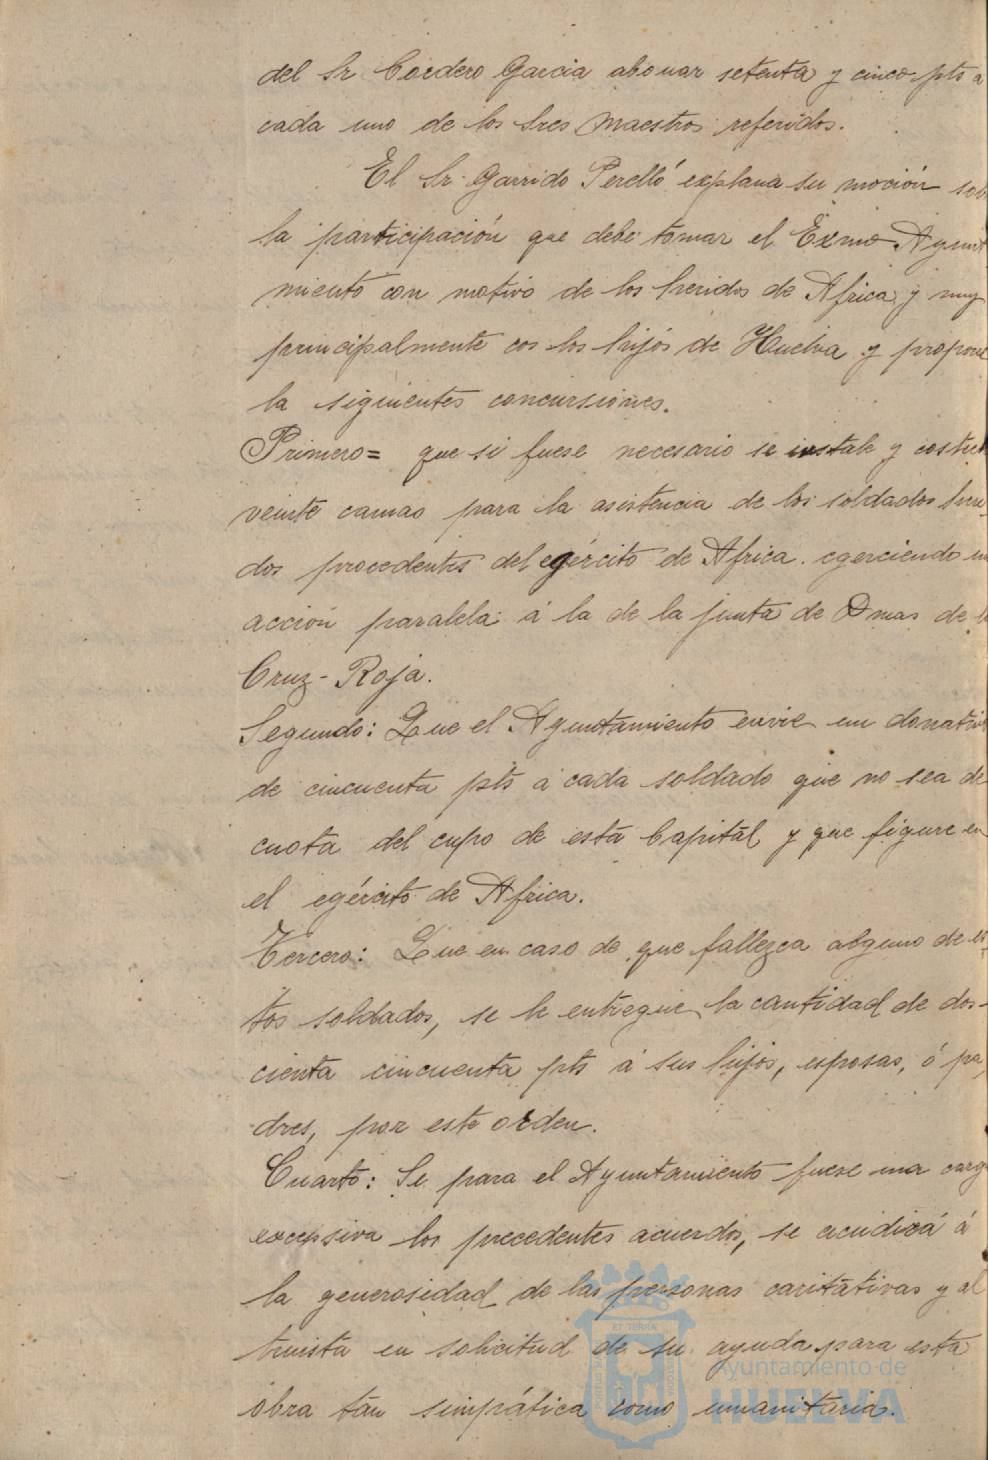 del Sr Cordero Garcia abonar setenta y cinco pts a
cada uno de los tres maestros referidos.
El Sr. Garrido Perelló explana su moción sob
la participación que debe tomar el Exmo Ayunt
miento con motivo de los heridos de Africa y muy
principalmente cos los hijos de Huelva y propone
la siguientes concursiones.
Primero= que si fuese necesario se instale y coste
veinte camas para la asistencia de los soldados heri-
dos procedentes del egército de Africa. egerciendo un
acción paralela á la de la junta de Damas de l
Cruz-Roja.
Segundo: Que el Ayuntamiento envie un donativ
de cincuenta pts á cada soldado que no sea de
cuota del cupo de esta Capital y que figure en
el egército de Africa.
Tercero: Que en caso de que fallezca alguno de es-
tos soldados, se le entregue la cantidad de dos-
cienta cincuenta pts á sus hijos, esposas, ó pa
dres, por este orden.
Cuarto: Si para el Ayuntamiento fuese una carg
excepsiva los precedentes acuerdos, se acudirá á
la generosidad de las personas caritativas y al
truista en solicitud de su ayuda para esta
obra tan simpática como umanitaria.
Ayuntamiento de
HUELVA